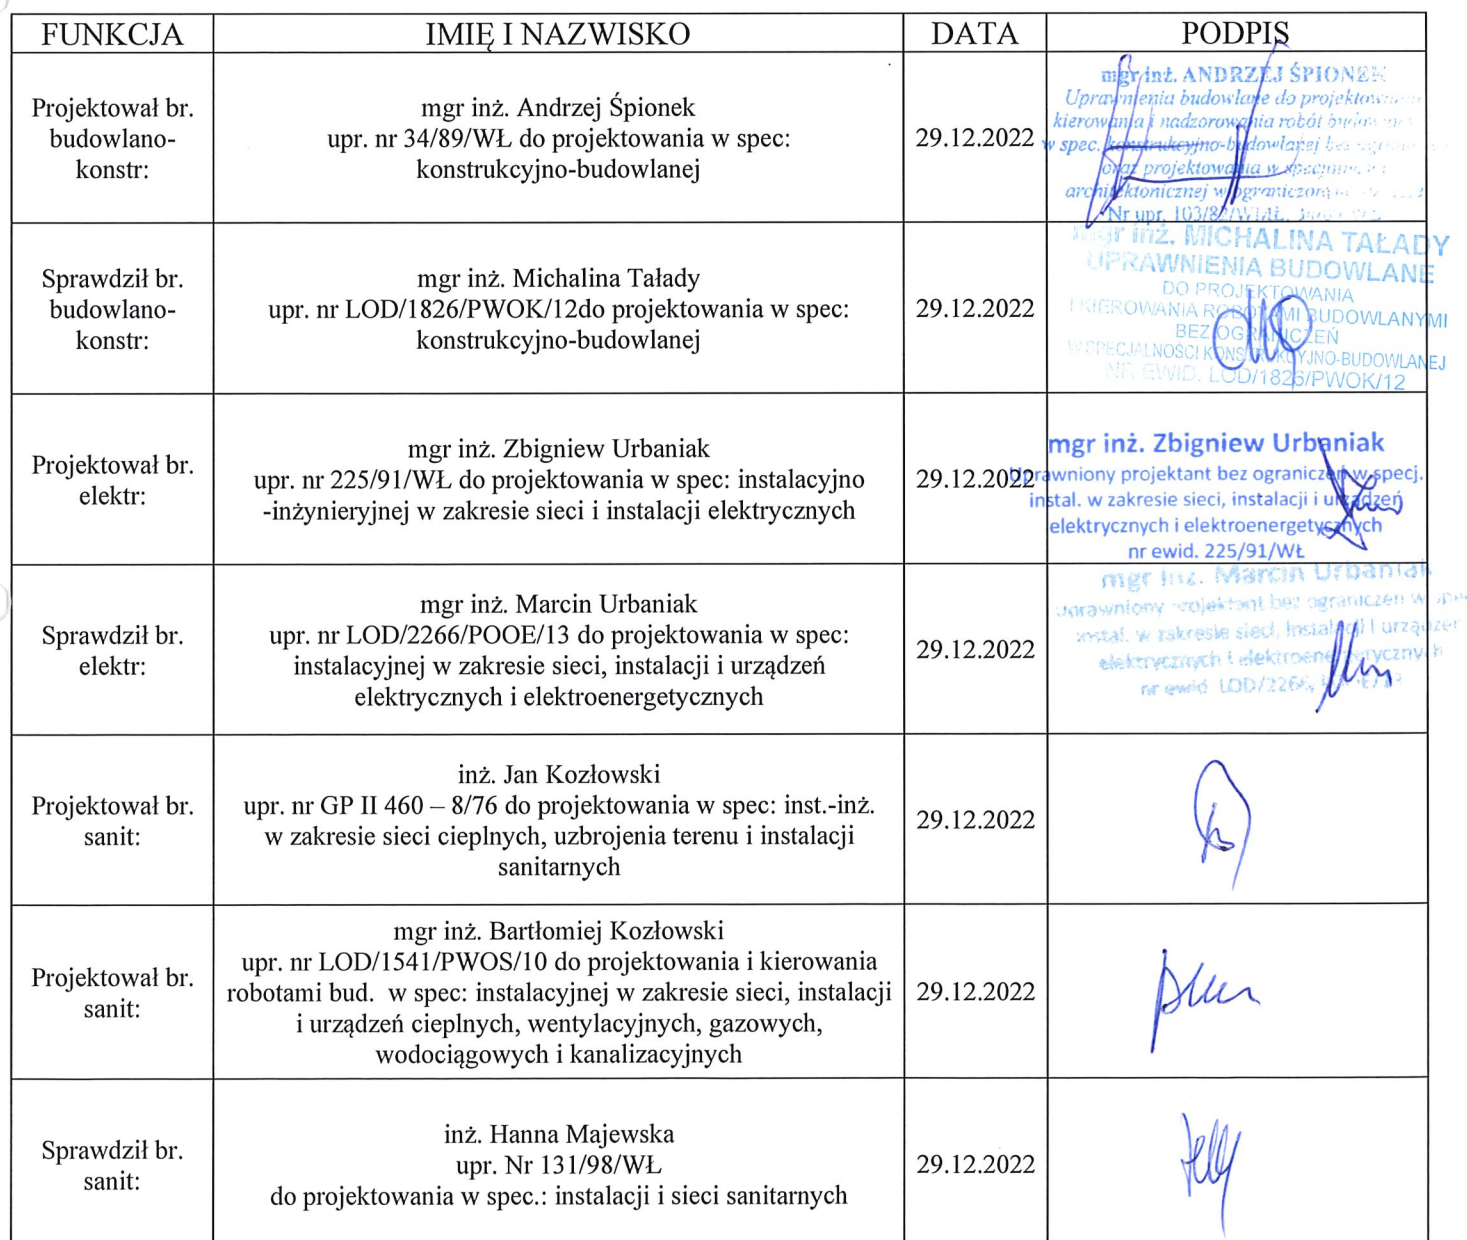 FUNKCJA IMIĘ I NAZWISKO DATA PODPIS
Projektował br.
budowlano-
konstr:
mgr inż. Andrzej Śpionek
upr. nr 34/89/WŁ do projektowania w spec:
konstrukcyjno-budowlanej
29.12.2022
mgr inż. ANDRZEJ ŚPIONEK
Uprawnienia budowlane do
kierowania i nadzorowania robót
w spec. konstrukcyjno-budowlanej bez
oraz projektowania w
architektonicznej w
Nr upr. 103/82/
Sprawdził br.
budowlano-
konstr:
mgr inż. Michalina Tałady
upr. nr LOD/1826/PWOK/12do projektowania w spec:
konstrukcyjno-budowlanej
29.12.2022
mgr inż. MICHALINA TAŁADY
UPRAWNIENIA BUDOWLANE
DO PROJEKTOWANIA
I KIEROWANIA ROBOTAMI BUDOWLANYMI
BEZ OGRANICZEŃ
W SPECJALNOŚCI KONSTRUKCYJNO-BUDOWLANEJ
NR EWID. LOD/1826/PWOK/12
Projektował br.
elektr:
mgr inż. Zbigniew Urbaniak
upr. nr 225/91/WŁ do projektowania w spec: instalacyjno
-inżynieryjnej w zakresie sieci i instalacji elektrycznych
29.12.2022
mgr inż. Zbigniew Urbaniak
Uprawniony projektant bez ograniczeń w specj.
instal. w zakresie sieci, instalacji i urządzeń
elektrycznych i elektroenergetycznych
nr ewid. 225/91/WŁ
Sprawdził br.
elektr:
mgr inż. Marcin Urbaniak
upr. nr LOD/2266/POOE/13 do projektowania w spec:
instalacyjnej w zakresie sieci, instalacji i urządzeń
elektrycznych i elektroenergetycznych
29.12.2022
mgr inż. Marcin Urbaniak
Uprawniony projektant bez ograniczeń w
instal. w zakresie sieci, instalacji i urządzeń
elektrycznych i elektroenergetycznych
nr ewid. LOD/2266/
Projektował br.
sanit:
inż. Jan Kozłowski
upr. nr GP II 460 – 8/76 do projektowania w spec: inst.-inż.
w zakresie sieci cieplnych, uzbrojenia terenu i instalacji
sanitarnych
29.12.2022
Projektował br.
sanit:
mgr inż. Bartłomiej Kozłowski
upr. nr LOD/1541/PWOS/10 do projektowania i kierowania
robotami bud. w spec: instalacyjnej w zakresie sieci, instalacji
i urządzeń cieplnych, wentylacyjnych, gazowych,
wodociągowych i kanalizacyjnych
29.12.2022
Sprawdził br.
sanit:
inż. Hanna Majewska
upr. Nr 131/98/WŁ
do projektowania w spec.: instalacji i sieci sanitarnych
29.12.2022